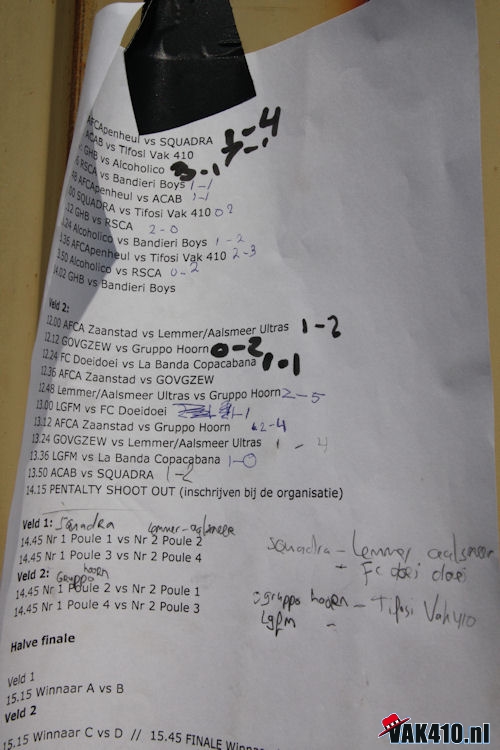 AFCApenheul vs SQUADRA 1-4
ACAB vs Tifosi Vak 410
GHB vs Alcoholico 3-1
RSCA vs Bandieri Boys 1-1
AFCApenheul vs ACAB 1-1
SQUADRA vs Tifosi Vak 410 0 2
.12 GHB vs RSCA 2-0
.24 Alcoholico vs Bandieri Boys 1-2
.36 AFCApenheul vs Tifosi Vak 410 2-3
.50 Alcoholico vs RSCA 0-2
14.02 GHB vs Bandieri Boys
Veld 2:
12.00 AFCA Zaanstad vs Lemmer/Aalsmeer Ultras 1-2
12.12 GOVGZEW vs Gruppo Hoorn 0-2
12.24 FC Doeidoei vs La Banda Copacabana 1-1
12.36 AFCA Zaanstad vs GOVGZEW
12.48 Lemmer/Aalsmeer Ultras vs Gruppo Hoorn 2-5
13.00 LGFM vs FC Doeidoei
13.12 AFCA Zaanstad vs Gruppo Hoorn 2-4
13.24 GOVGZEW vs Lemmer/Aalsmeer Ultras 1-4
13.36 LGFM vs La Banda Copacabana 1-0
13.50 ACAB vs SQUADRA 1-2
14.15 PENTALTY SHOOT OUT (inschrijven bij de organisatie)
Veld 1: Squadra Lemmer-aalsmeer
14.45 Nr 1 Poule 1 vs Nr 2 Poule 2
14.45 Nr 1 Poule 3 vs Nr 2 Poule 4
Squadra - Lemmer aalsmeer
- FC doei doei
Veld 2: Gruppo hoorn
14.45 Nr 1 Poule 2 vs Nr 2 Poule 1
14.45 Nr 1 Poule 4 vs Nr 2 Poule 3
gruppo hoorn - Tifosi Vak410
lgfm -
Halve finale
Veld 1
15.15 Winnaar A vs B
Veld 2
15.15 Winnaar C vs D // 15.45 FINALE
VAK410.nl